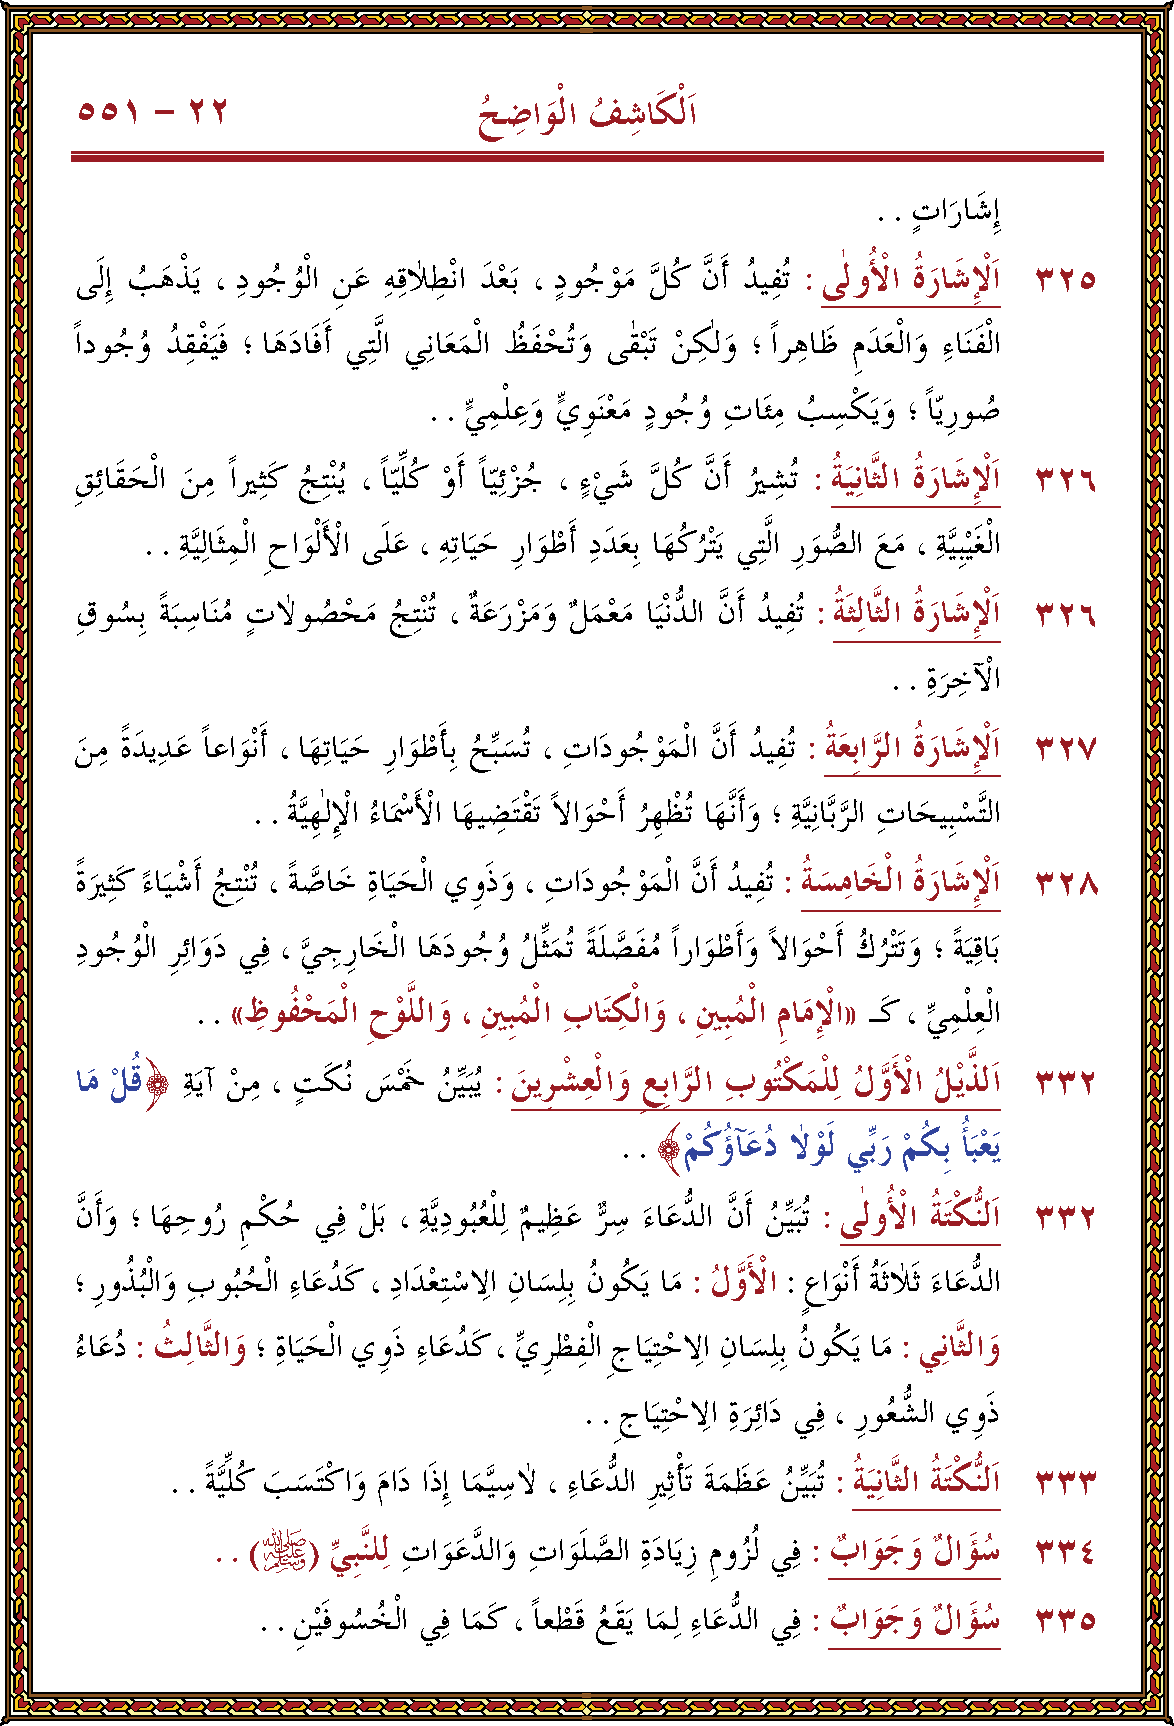 اَلْكَاشِفُ الْوَاضِحُ ٢٢ - ٥٥١
إِشَارَاتٍ . .
٣٢٥ اَلْإِشَارَةُ الْأُولٰى : تُفِيدُ أَنَّ كُلَّ مَوْجُودٍ ، بَعْدَ انْطِلاٰقِهِ عَنِ الْوُجُودِ ، يَذْهَبُ إِلَى
الْفَنَاءِ وَالْعَدَمِ ظَاهِراً ؛ وَلٰكِنْ تَبْقٰى وَتُحْفَظُ الْمَعَانِي الَّتِي أَفَادَهَا ؛ فَيَفْقِدُ وُجُوداً
صُورِيّاً ؛ وَيَكْسِبُ مِئَاتِ وُجُودٍ مَعْنَوِيٍّ وَعِلْمِيٍّ . .
٣٢٦ اَلْإِشَارَةُ الثَّانِيَةُ : تُشِيرُ أَنَّ كُلَّ شَيْءٍ ، جُزْئِيّاً أَوْ كُلِّيّاً ، يُنْتِجُ كَثِيراً مِنَ الْحَقَائِقِ
الْغَيْبِيَّةِ ، مَعَ الصُّوَرِ الَّتِي يَتْرُكُهَا بِعَدَدِ أَطْوَارِ حَيَاتِهِ ، عَلَى الْأَلْوَاحِ الْمِثَالِيَّةِ . .
٣٢٦ اَلْإِشَارَةُ الثَّالِثَةُ : تُفِيدُ أَنَّ الدُّنْيَا مَعْمَلٌ وَمَزْرَعَةٌ ، تُنْتِجُ مَحْصُولاٰتٍ مُنَاسِبَةً بِسُوقِ
الْآخِرَةِ . .
٣٢٧ اَلْإِشَارَةُ الرَّابِعَةُ : تُفِيدُ أَنَّ الْمَوْجُودَاتِ ، تُسَبِّحُ بِأَطْوَارِ حَيَاتِهَا ، أَنْوَاعاً عَدِيدَةً مِنَ
التَّسْبِيحَاتِ الرَّبَّانِيَّةِ ؛ وَأَنَّهَا تُظْهِرُ أَحْوَالاً تَقْتَضِيهَا الْأَسْمَاءُ الْإِلٰهِيَّةُ . .
٣٢٨ اَلْإِشَارَةُ الْخَامِسَةُ : تُفِيدُ أَنَّ الْمَوْجُودَاتِ ، وَذَوِي الْحَيَاةِ خَاصَّةً ، تُنْتِجُ أَشْيَاءً كَثِيرَةً
بَاقِيَةً ؛ وَتَتْرُكُ أَحْوَالاً وَأَطْوَاراً مُفَصَّلَةً تُمَثِّلُ وُجُودَهَا الْخَارِجِيَّ ، فِي دَوَائِرِ الْوُجُودِ
الْعِلْمِيِّ ، كَـ «الْإِمَامِ الْمُبِينِ ، وَالْكِتَابِ الْمُبِينِ ، وَاللَّوْحِ الْمَحْفُوظِ» . .
٣٣٢ اَلذَّيْلُ الْأَوَّلُ لِلْمَكْتُوبِ الرَّابِعِ وَالْعِشْرِينَ : يُبَيِّنُ خَمْسَ نُكَتٍ ، مِنْ آيَةِ ﴿قُلْ مَا
يَعْبَأُ بِكُمْ رَبِّي لَوْلاٰ دُعَآؤُكُمْ﴾ . .
٣٣٢ اَلنُّكْتَةُ الْأُولٰى : تُبَيِّنُ أَنَّ الدُّعَاءَ سِرٌّ عَظِيمٌ لِلْعُبُودِيَّةِ ، بَلْ فِي حُكْمِ رُوحِهَا ؛ وَأَنَّ
الدُّعَاءَ ثَلاٰثَةُ أَنْوَاعٍ : الْأَوَّلُ : مَا يَكُونُ بِلِسَانِ الاِسْتِعْدَادِ ، كَدُعَاءِ الْحُبُوبِ وَالْبُذُورِ ؛
وَالثَّانِي : مَا يَكُونُ بِلِسَانِ الاِحْتِيَاجِ الْفِطْرِيِّ ، كَدُعَاءِ ذَوِي الْحَيَاةِ ؛ وَالثَّالِثُ : دُعَاءُ
ذَوِي الشُّعُورِ ، فِي دَائِرَةِ الاِحْتِيَاجِ . .
٣٣٣ اَلنُّكْتَةُ الثَّانِيَةُ : تُبَيِّنُ عَظَمَةَ تَأْثِيرِ الدُّعَاءِ ، لاٰسِيَّمَا إِذَا دَامَ وَاكْتَسَبَ كُلِّيَّةً . .
٣٣٤ سُؤَالٌ وَجَوَابٌ : فِي لُزُومِ زِيَادَةِ الصَّلَوَاتِ وَالدَّعَوَاتِ لِلنَّبِيِّ (ﷺ) . .
٣٣٥ سُؤَالٌ وَجَوَابٌ : فِي الدُّعَاءِ لِمَا يَقَعُ قَطْعاً ، كَمَا فِي الْخُسُوفَيْنِ . .